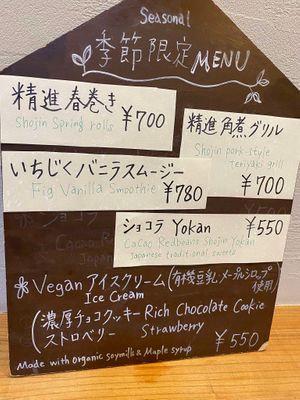 Seasonal
季節限定 MENU
精進春巻き
Shojin Spring rolls
¥700
精進角煮グリル
Shojin pork-style
Teriyaki grill
¥700
いちじくバニラスムージー
Fig Vanilla Smoothie
¥780
ショコラ Yokan
¥550
CaCao Redbeans Shojin Yokan
Japanese traditional sweets
Vegan アイスクリーム(有機豆乳メープルシロップ使用
Ice Cream
(濃厚チョコクッキー Rich Chocolate Cookie
ストロベリー Strawberry
Made with organic soymilk & Maple syrup
¥550